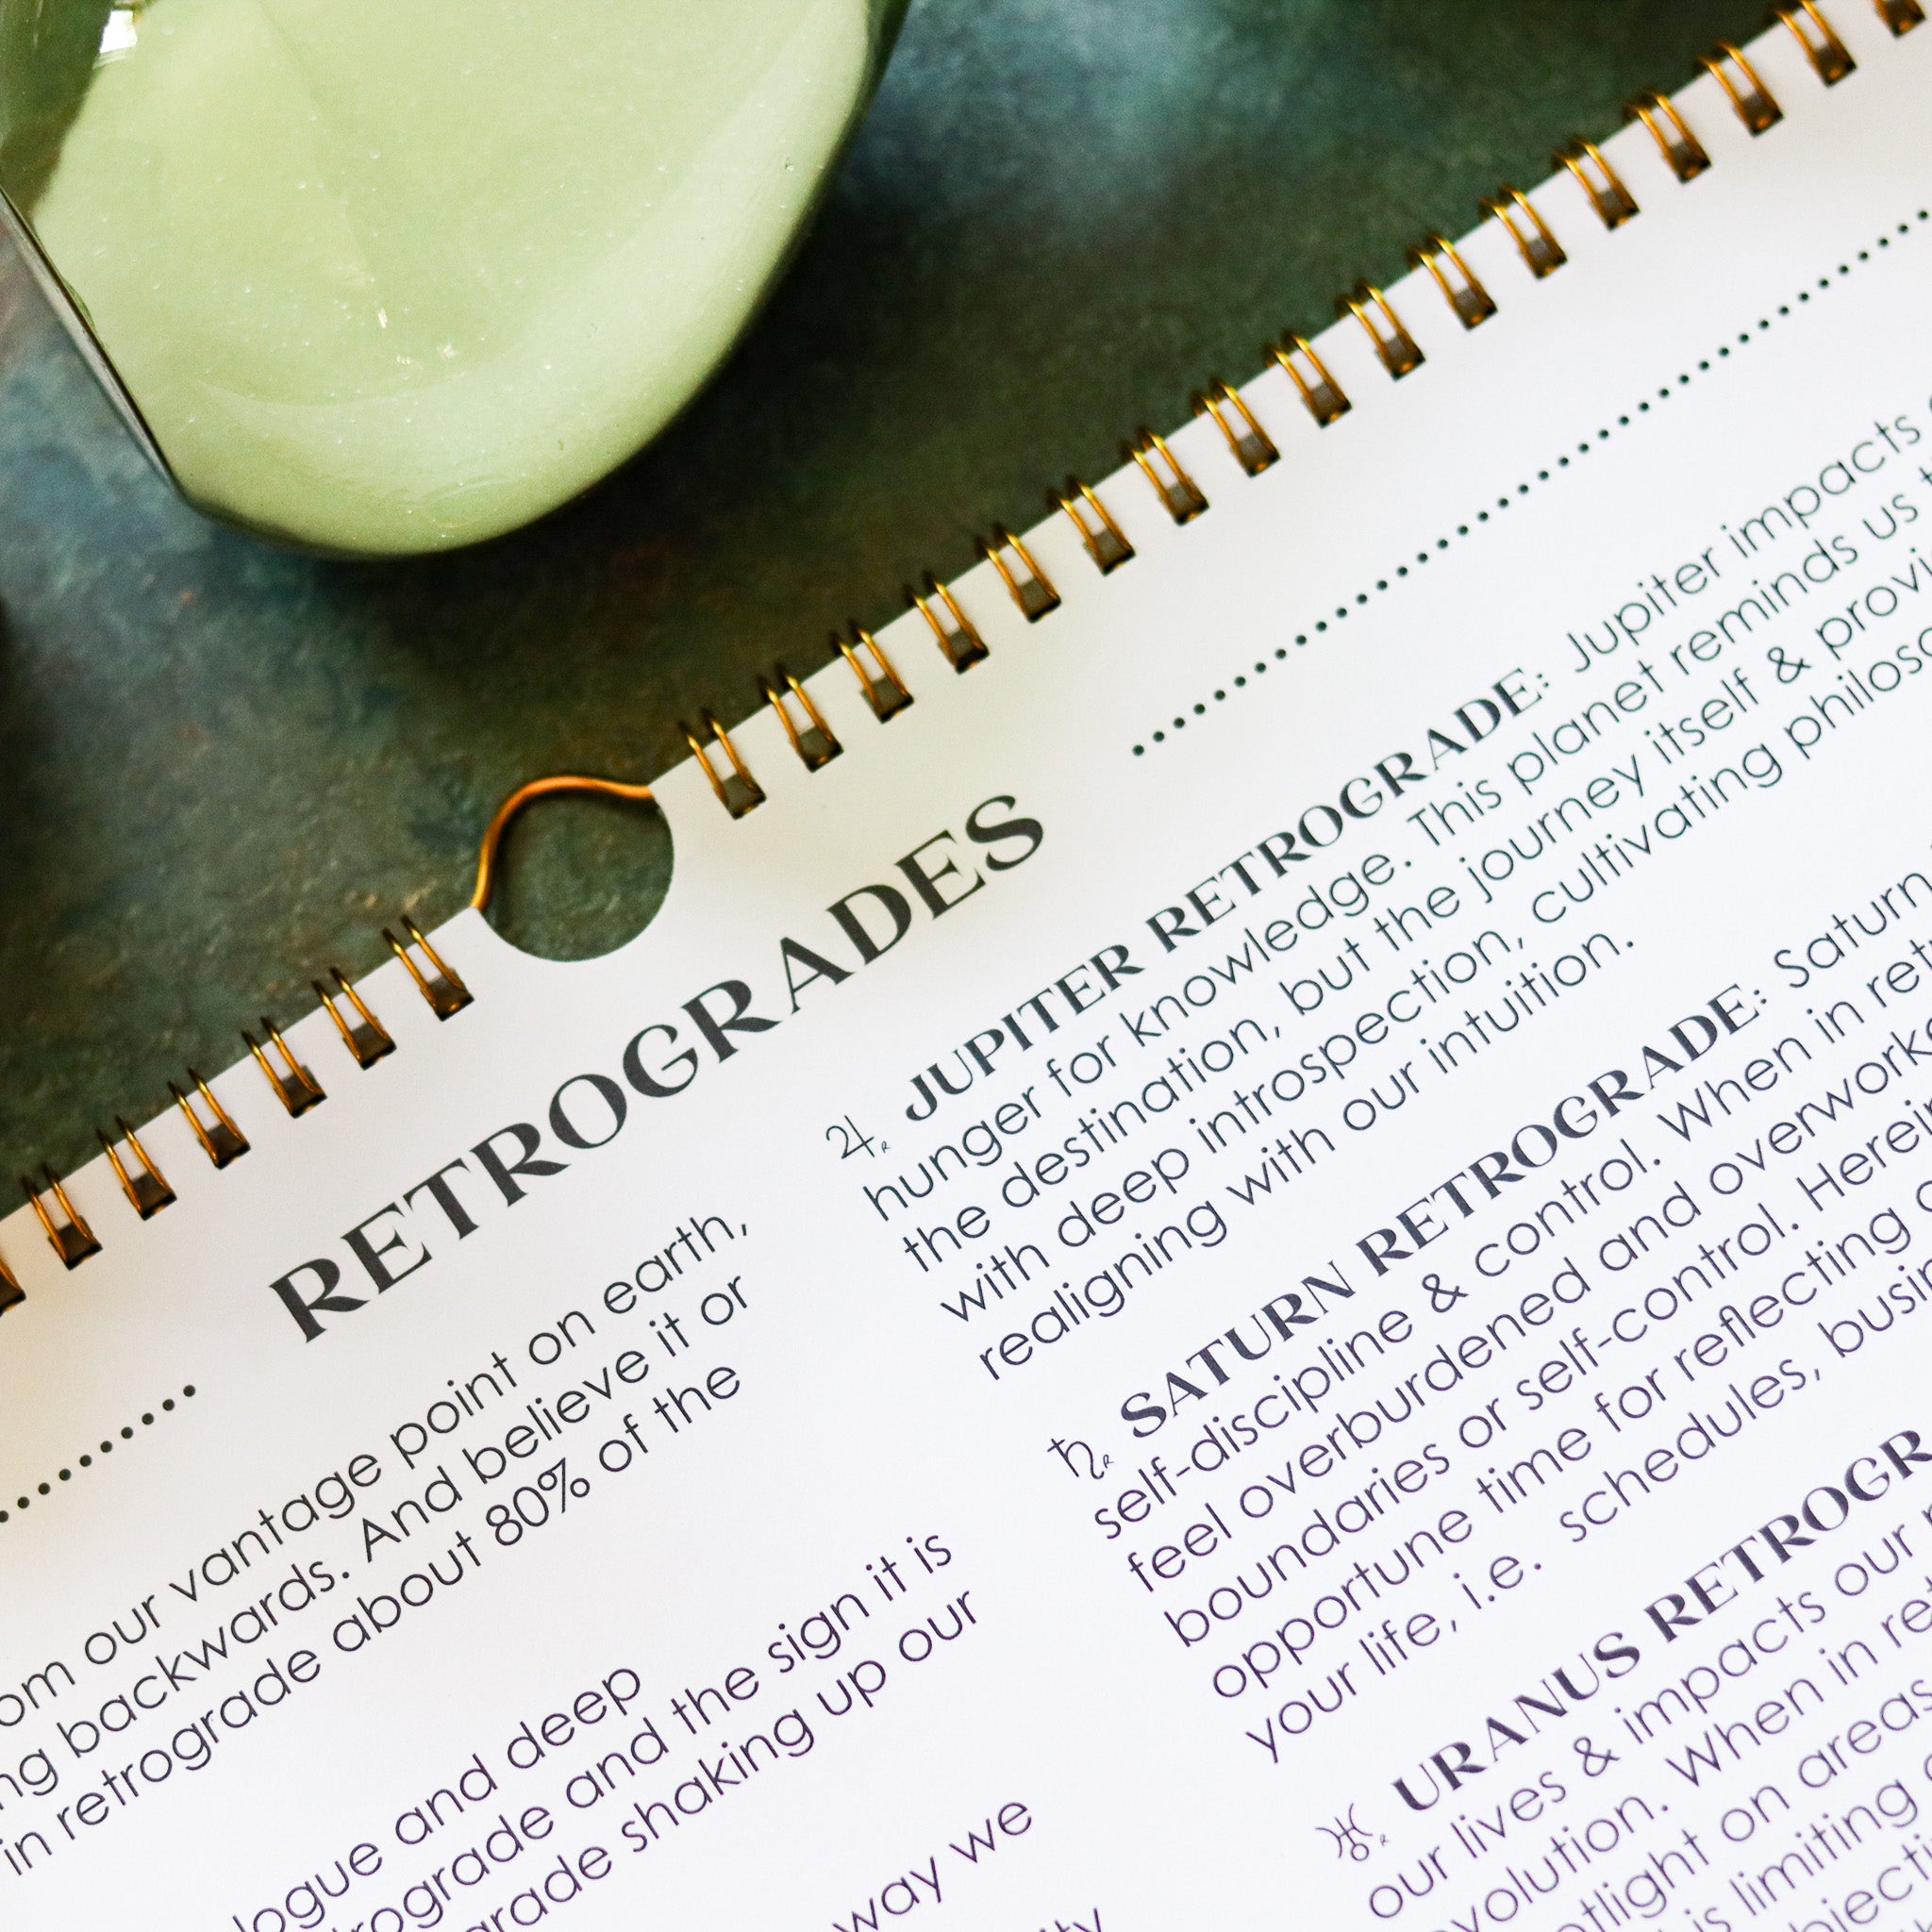 RETROGRADES
our vantage point on earth,
backwards. And believe it or
in retrograde about 80% of the
and deep
and the sign it is
shaking up our
way we
JUPITER RETROGRADE: Jupiter impacts
hunger for knowledge. This planet reminds us
the destination, but the journey itself &
with deep introspection, cultivating
realigning with our intuition.
SATURN RETROGRADE: Saturn
self-discipline & control. When in
feel overburdened and
boundaries or self-control.
opportune time for reflecting
your life, i.e. schedules,
URANUS
our lives & impacts our
When in
on areas
limiting